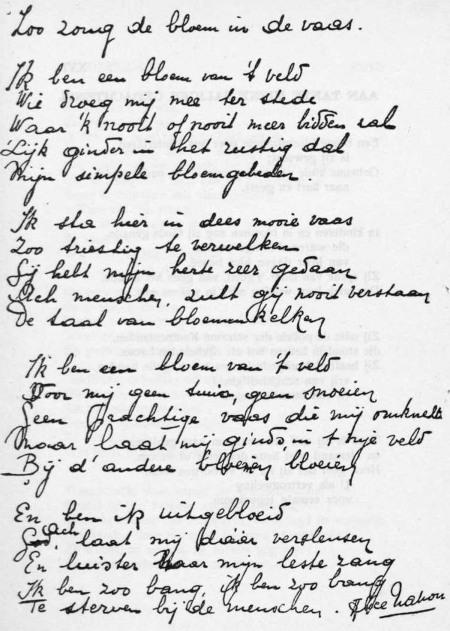 Zoo zong de bloem in de vaas.
Ik ben een bloem van 't veld
Wie droeg mij mee ter stede
Waar 'k nooit of nooit meer bidden zal
Lijk ginder in het rustig dal
Mijn simpele bloemgebeden.
Ik sta hier in dees mooie vaas
Zoo triestig te verwelken
Gij hebt mijn herte zeer gedaan
Ach menschen, zult gij nooit verstaan
De taal van bloemenkelken
Ik ben een bloem van 't veld
Voor mij geen tuin, geen snoeien
Geen prachtige vaas die mij omknelt
Maar laat mij ginds, in 't vrije veld
Bij d' andere bloemen bloeien
En ben ik uitgebloeid
ach laat mij dáár verslensen
En luister naar mijn leste zang
Ik ben zoo bang, ik ben zoo bang
Te sterven bij de menschen. Alice Nahon